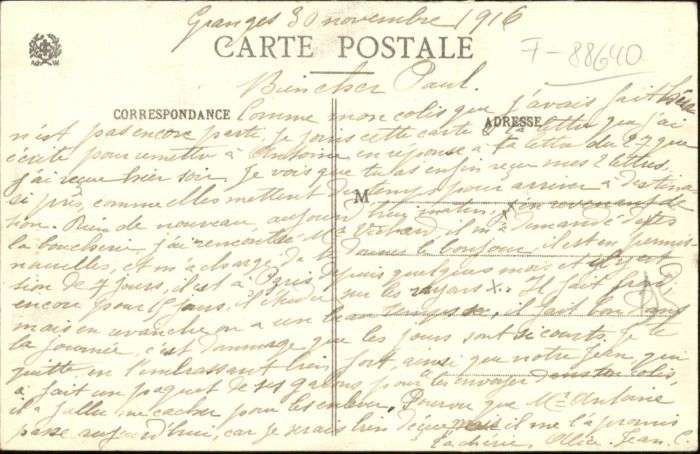 Granges 30 novembre 1916
CARTE POSTALE
F-88640
Bien cher Paul.
CORRESPONDANCE
ADRESSE
M
Comme mon colis que j'avais fait hier
n'est pas encore parti, je joins cette carte à la lettre que j'ai
écrite pour remettre à Antoine en réponse à ta lettre du 27 que
j'ai reçue hier soir. Je vois que tu as enfin reçu mes 2 lettres
si près, comme elles mettent du temps pour arriver à destina
tion. Rien de nouveau, aujourd'hui matin, en revenant de
la boucherie j'ai rencontré Mr il m'a demandé de tes
nouvelles, et m'a chargé de te donner le bonjour, il est en permis
sion de 7 jours, il est à Paris depuis quelques mois et il y est
encore pour 15 jours, il étudie sur les rayons X. Il fait froid
mais en revanche on a un beau temps sec, il fait bon dans
la journée, c'est dommage que les jours sont si courts. Je te
quitte en t'embrassant bien fort, ainsi que notre Jean qui
a fait un paquet de ses galons pour les envoyer dans ton colis,
il a fallu me cacher pour les enlever. Pourvu que Mr Antoine
passe aujourd'hui, car je serais bien déçue mais il me l'a promis
Ta chérie, Alice. Jean. C.